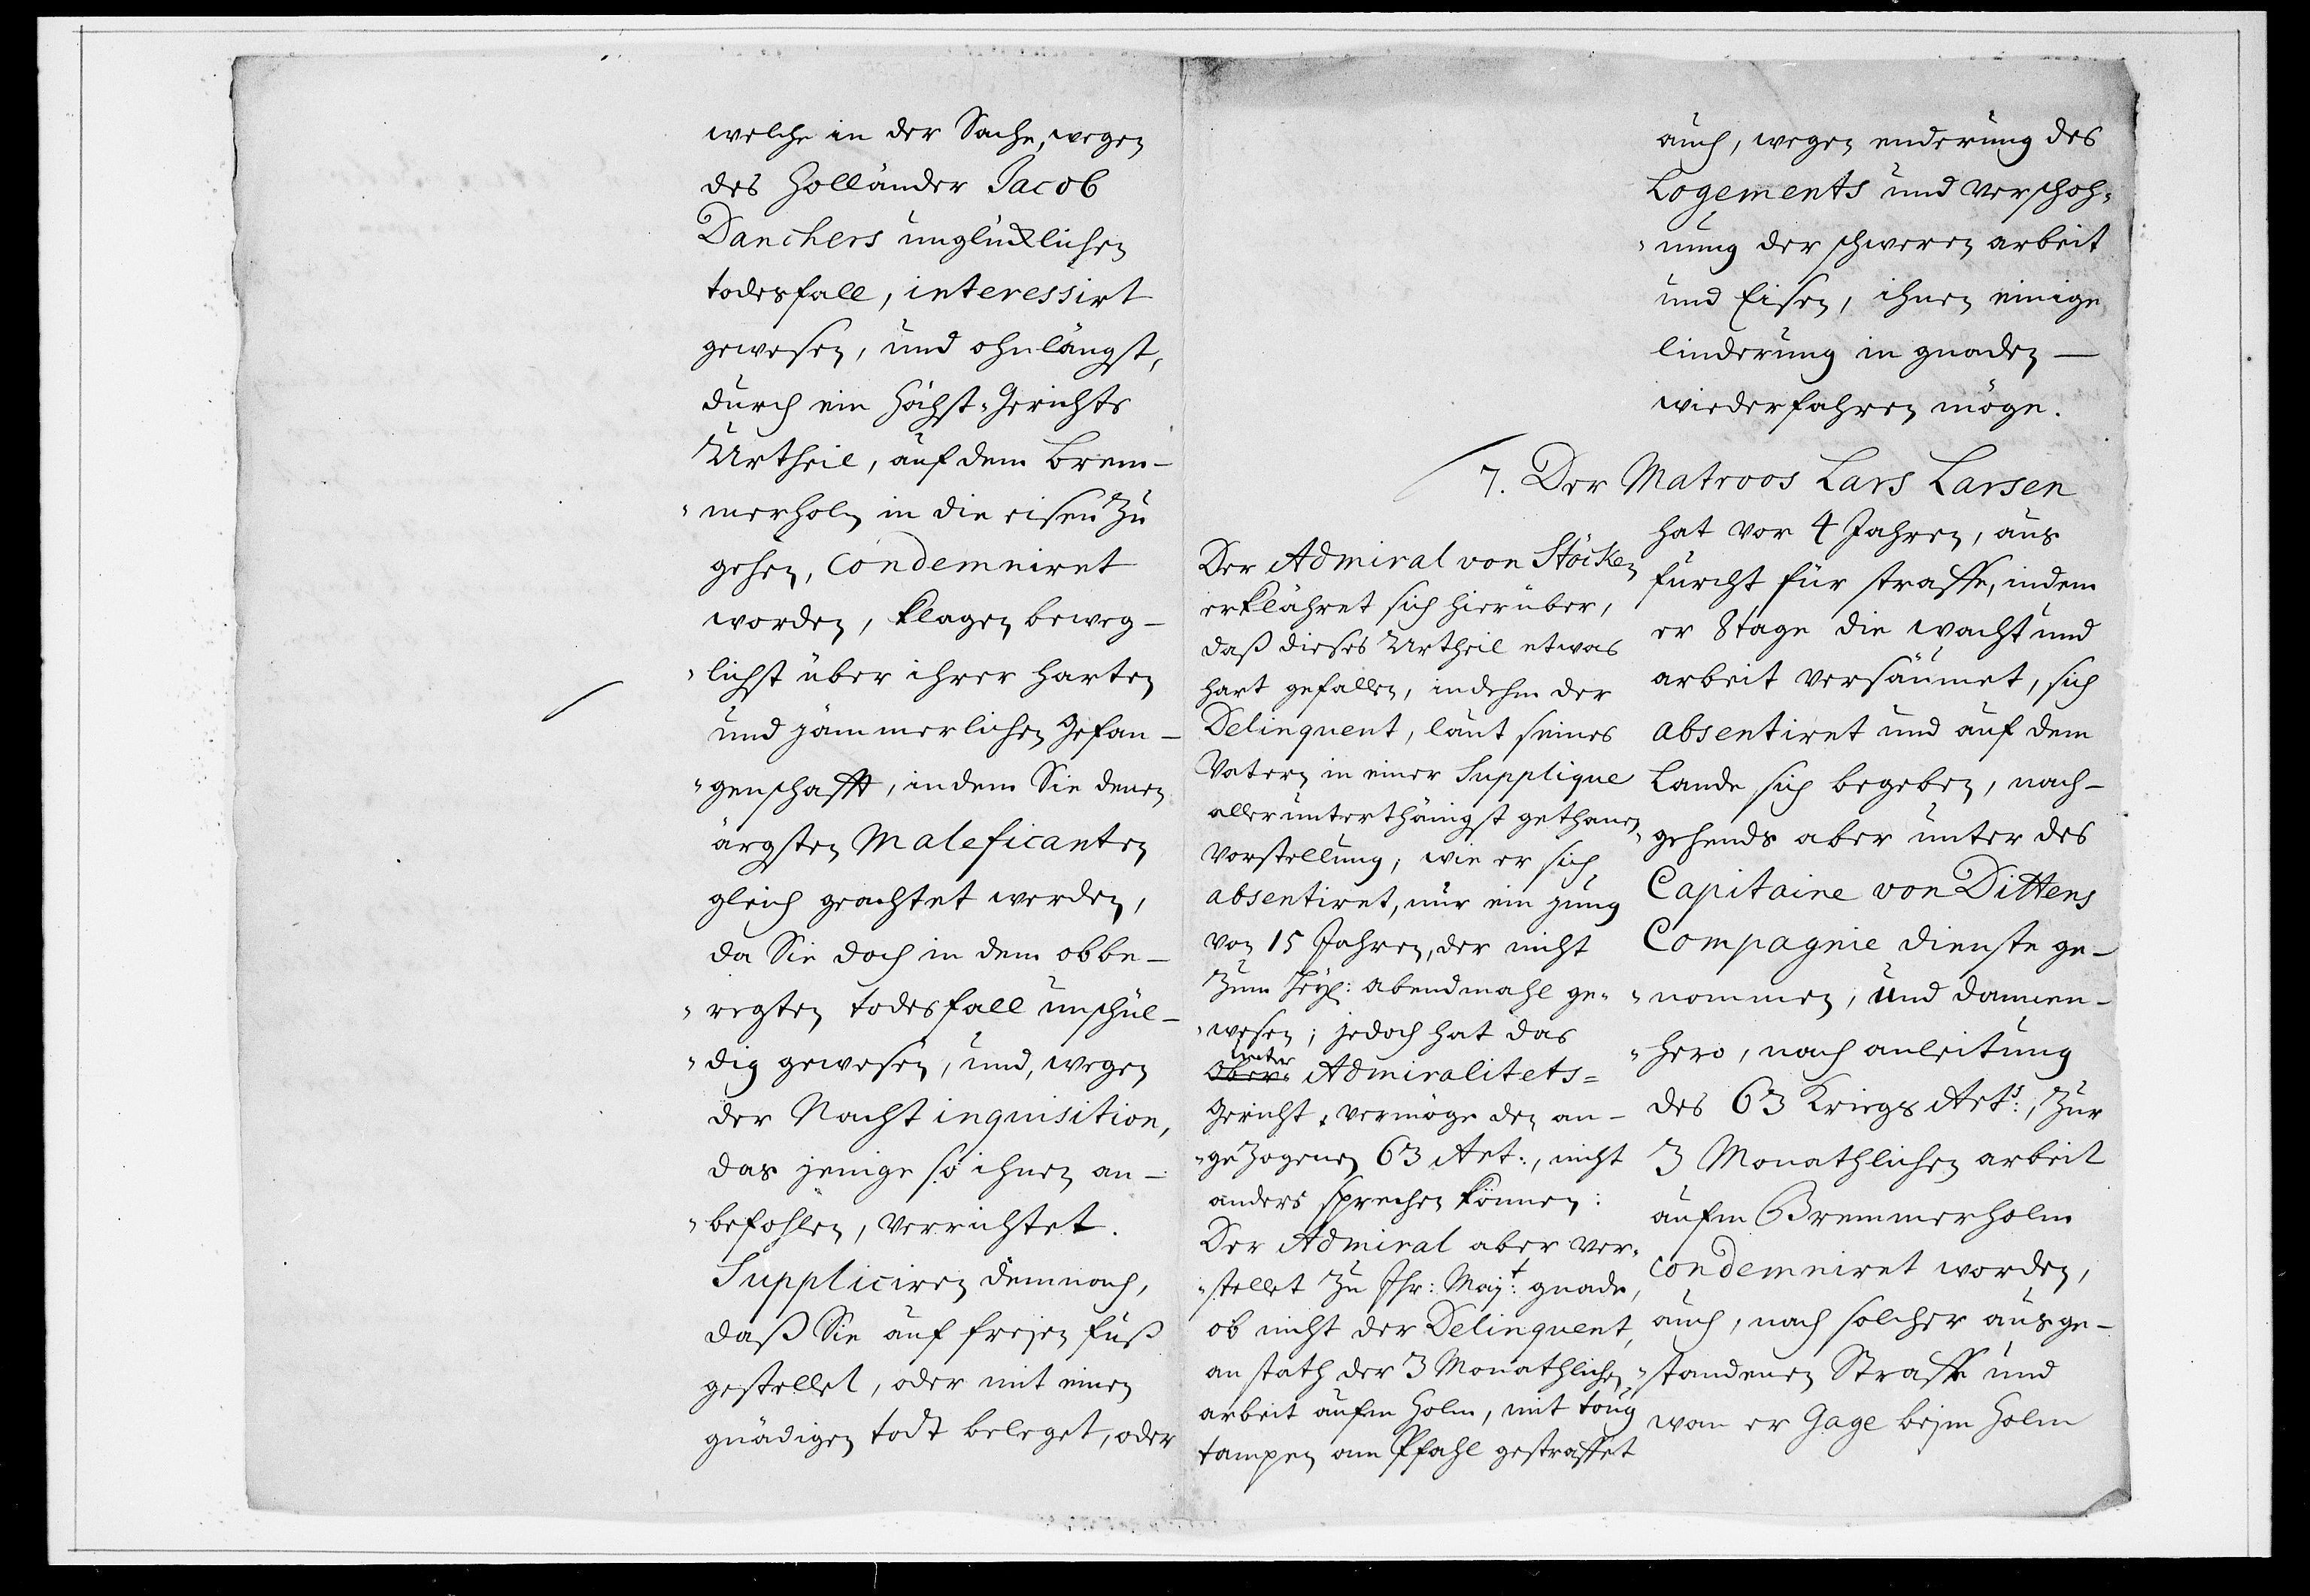 welche in der Sache, wegen
des Holländer Jacob
Danchers unglücklichen
todesfall, interessirt
gewesen, und ohnlängst,
durch ein Höchst-Gerichts
Urtheil, auf dem Brem-
"merholm in die eisen zu
gehen, condemniret
worden, klagen beweg-
"lichst über ihrer harten
und jämmerlichen Gefan-
"genschafft, indem Sie denen
ärgsten Maleficanten
gleich geachtet werden,
da Sie doch in dem obbe-
"regten todesfall unschul-
"dig gewesen, und, wegen
der Nacht inquisition,
das jenige so ihnen an-
"befohlen, verrichtet.
Suppliciren demnach,
daß Sie auf freyen fuß
gestellet, oder mit einen
gnädigen todt beleget, oder
auch, wegen enderung des
Logements und verschoh-
"nung der schweren arbeit
und Eisen, ihnen einige
linderung in gnaden —
wiederfahren möge.
7. Der Matroos Lars Larsen
hat vor 4 Jahren, aus
furcht für straffe, indem
er 8 tage die wacht und
arbeit versäumet, sich
absentiret und auf dem
Lande sich begeben, nach-
"gehends aber unter des
Capitaine von Dittens
Compagnie dienste ge-
"nommen, und dannen-
"hero, nach anleitung
des 63 Kriegs Art:, zur
3 Monathlichen arbeit
aufm Bremmerholm
condemniret worden,
auch, nach solcher ausge-
"standenen Straffe und
wan er Gage beym Holm
Der Admiral von Stöcken
erklähret sich hierüber,
daß dieses Urtheil etwas
hart gefallen, indehm der
Delinquent, laut seines
Vatern in einer Supplique
allerunterthänigst gethanen
Vorstellung, wie er sich
absentiret, nur ein jung
von 15 Jahren, der nicht
zum Heyl: abendmahl ge-
"wesen; jedoch hat das
unter
Ober- Admiralitets=
Gericht, vermöge den an-
"gezogenen 63 Art:, nicht
anders sprechen können:
Der Admiral aber ver-
"stellet zu Ihr: Majt: gnade,
ob nicht der Delinquent,
an stath der 3 Monathlichen
arbeit aufm Holm, mit toug
tampen am Pfahl gestraffet